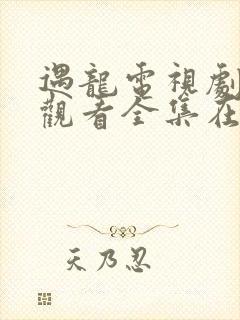 遇龍電視劇
觀看全集在
天乃忍